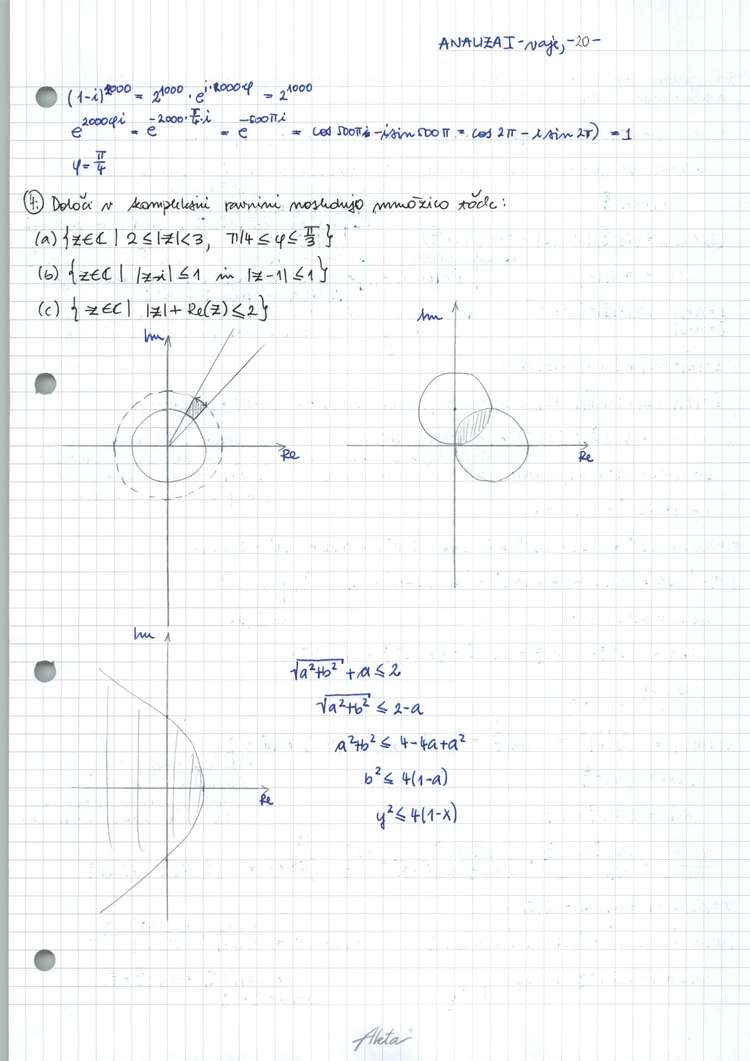 ANALIZA I - vaje, -20-
(1-i)^2000 = 2^1000 · e^(i·2000φ) = 2^1000
e^(2000φi) = e^(-2000·π/4·i) = e^(-500πi) = cos 500π - i sin 500π = cos 2π - i sin 2π) = 1
φ = π/4
4. Določi v kompleksni ravnini naslednjo množico točk:
(a) {z∈ℂ | 2 ≤ |z| < 3, π/4 ≤ φ ≤ π/3}
(b) {z∈ℂ | |z-i| ≤ 1 in |z-1| ≤ 1}
(c) {z∈ℂ | |z| + Re(z) ≤ 2}
Im
Re
Im
Re
Im
Re
√(a²+b²) + a ≤ 2
√(a²+b²) ≤ 2-a
a²+b² ≤ 4-4a+a²
b² ≤ 4(1-a)
y² ≤ 4(1-x)